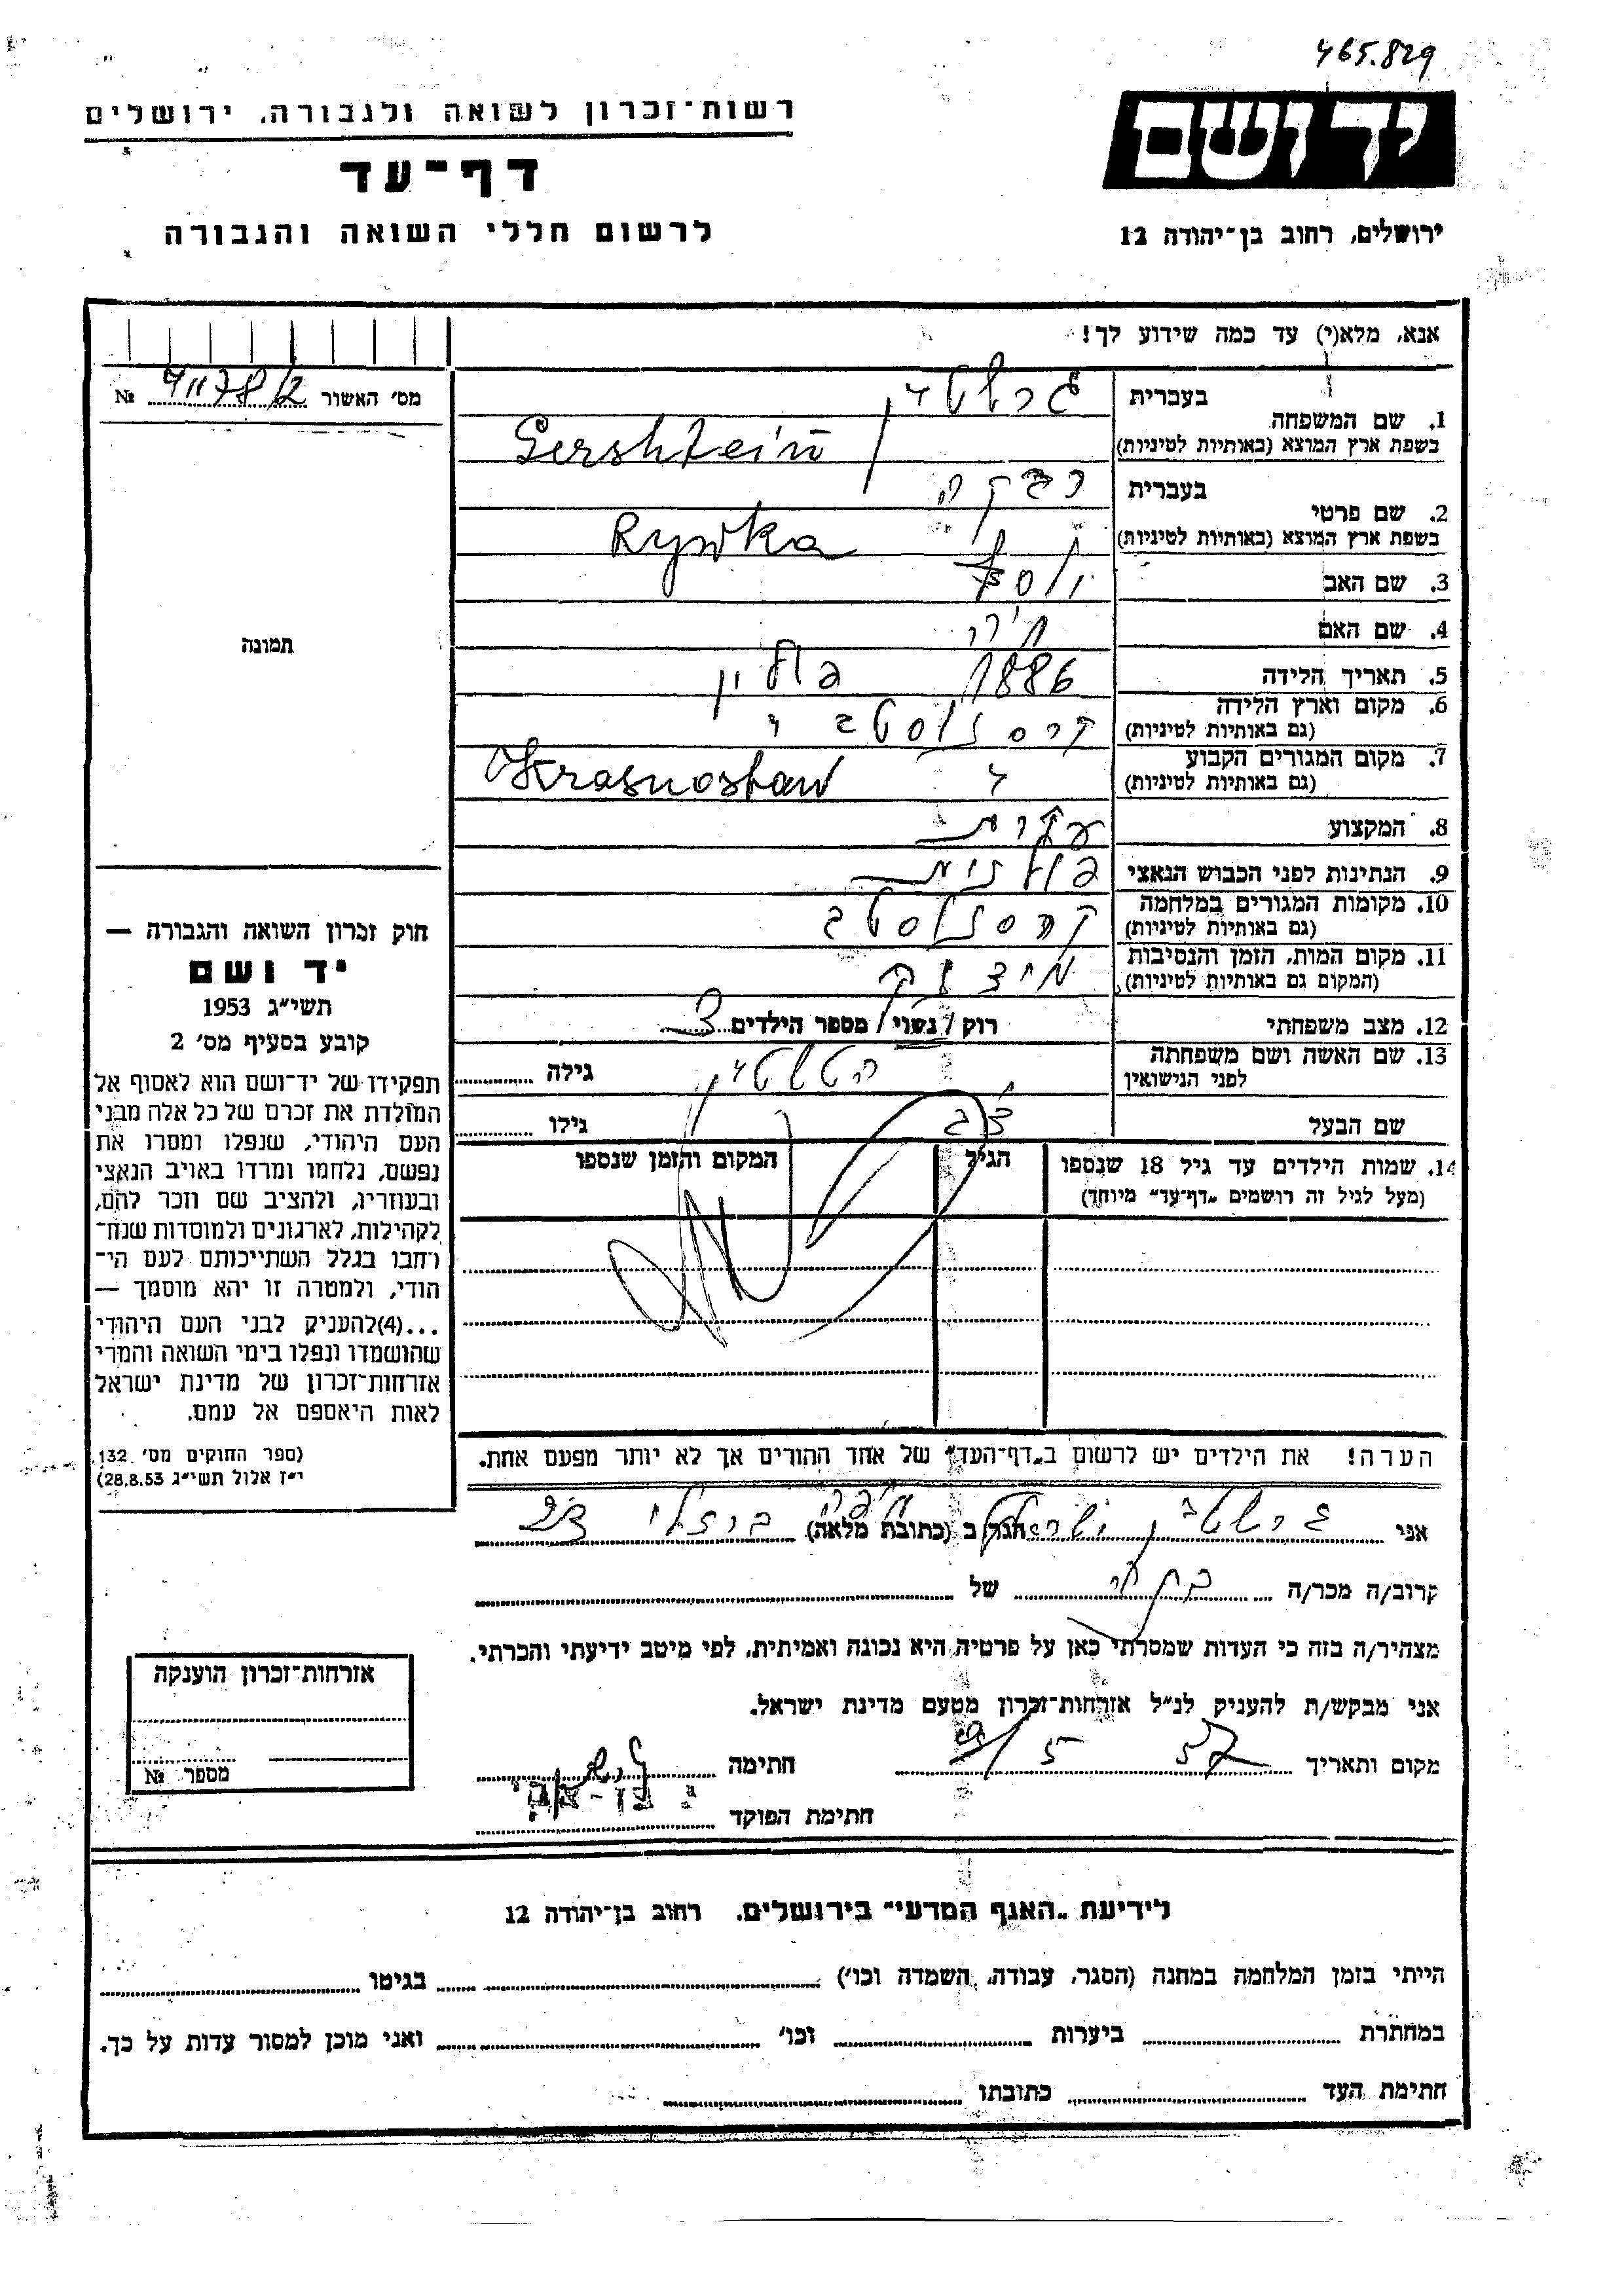 465.829
יד ושם
ירושלים, רחוב בן־יהודה 12
רשות־זכרון לשואה ולגבורה, ירושלים
דף־עד
לרשום חללי השואה והגבורה
אנא, מלא(י) עד כמה שידוע לך!
1. שם המשפחה בעברית גרשטיין
בשפת ארץ המוצא (באותיות לטיניות) Gershtein
2. שם פרטי בעברית רבקה
בשפת ארץ המוצא (באותיות לטיניות) Rywka
3. שם האב
4. שם האם
5. תאריך הלידה 1886 פולין
6. מקום וארץ הלידה
(גם באותיות לטיניות) קרסנוסטב
7. מקום המגורים הקבוע
(גם באותיות לטיניות) Krasnostaw
8. המקצוע עקרת
9. הנתינות לפני הכבוש הנאצי פולנית
10. מקומות המגורים במלחמה
(גם באותיות לטיניות) קרסנוסטב
11. מקום המות, הזמן והנסיבות
(המקום גם באותיות לטיניות)
12. מצב משפחתי רוק / נשוי / מספר הילדים 3
13. שם האשה ושם משפחתה
לפני הנישואין גילה
שם הבעל גילו
14. שמות הילדים עד גיל 18 שנספו הגיל המקום והזמן שנספו
(מעל לגיל זה רושמים „דף־עד" מיוחד)
הערה! את הילדים יש לרשום ב„דף־העד" של אחד ההורים אך לא יותר מפעם אחת.
מס׳ האשור 41178/2 №
תמונה
חוק זכרון השואה והגבורה —
יד ושם
תשי״ג 1953
קובע בסעיף מס׳ 2
תפקידו של יד־ושם הוא לאסוף אל
המולדת את זכרם של כל אלה מבני
העם היהודי, שנפלו ומסרו את
נפשם, נלחמו ומרדו באויב הנאצי
ובעוזריו, ולהציב שם וזכר להם,
לקהילות, לארגונים ולמוסדות שנח־
רחבו בגלל השתייכותם לעם הי־
הודי, ולמטרה זו יהא מוסמך —
...(4)להעניק לבני העם היהודי
שהושמדו ונפלו בימי השואה והמרי
אזרחות־זכרון של מדינת ישראל
לאות היאספם אל עמם.
(ספר החוקים מס׳ 132,
י״ז אלול תשי״ג 28.8.53)
אני גרשטיין ישראל הגר ב (כתובת מלאה) חיפה ברזלי 23
קרוב/ה מכר/ה של
מצהיר/ה בזה כי העדות שמסרתי כאן על פרטיה היא נכונה ואמיתית, לפי מיטב ידיעתי והכרתי.
אני מבקש/ת להעניק לנ״ל אזרחות־זכרון מטעם מדינת ישראל.
מקום ותאריך 9/5 57 חתימה
חתימת הפוקד
אזרחות־זכרון הוענקה
מספר №
לידיעת „האגף המדעי" בירושלים, רחוב בן־יהודה 12
הייתי בזמן המלחמה במחנה (הסגר, עבודה, השמדה וכו׳) בגיטו
במחתרת ביערות וכו׳ ואני מוכן למסור עדות על כך.
חתימת העד כתובתו